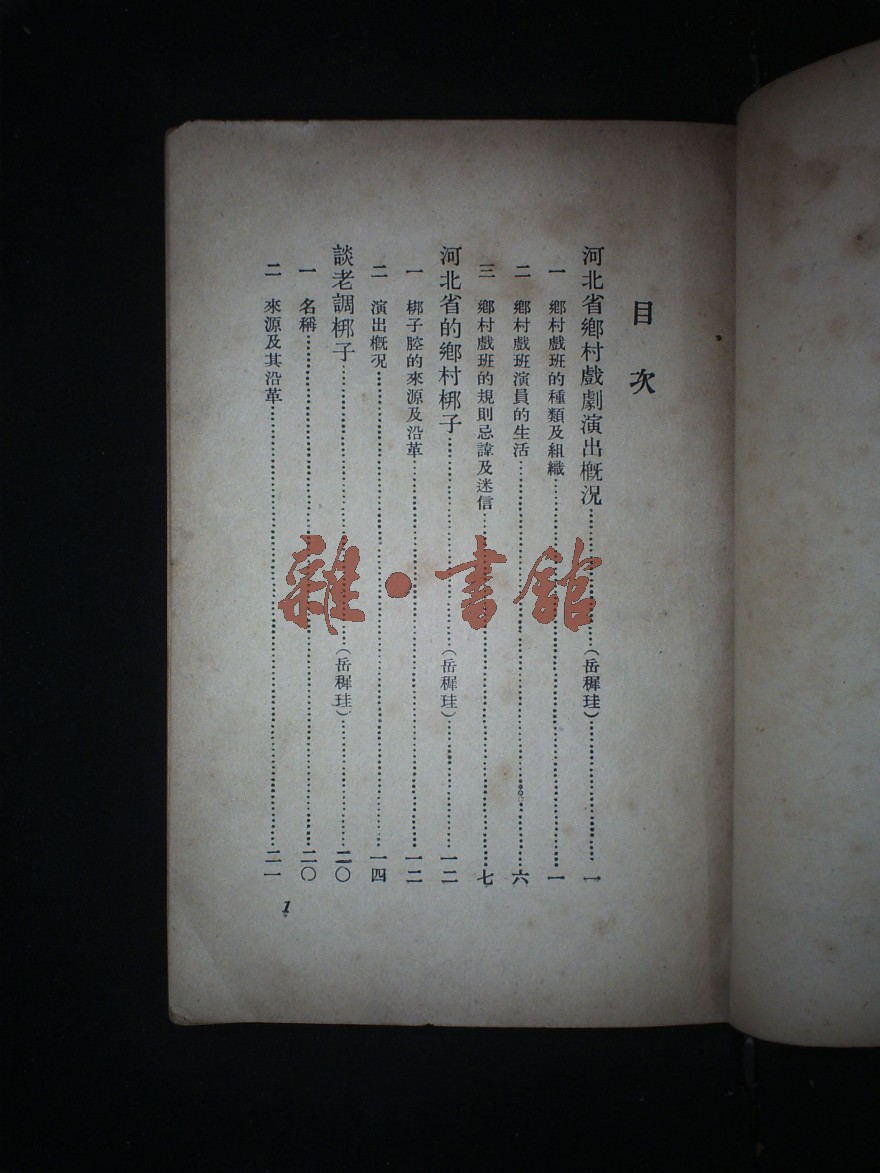 目次
河北省鄉村戲劇演出概況……（岳穉珪）……一
一 鄉村戲班的種類及組織……一
二 鄉村戲班演員的生活……六
三 鄉村戲班的規則忌諱及迷信……七
河北省的鄉村梆子……（岳穉珪）……一二
一 梆子腔的來源及沿革……一二
二 演出概況……一四
談老調梆子……（岳穉珪）……二〇
一 名稱……二〇
二 來源及其沿革……二一
1
雜·書館